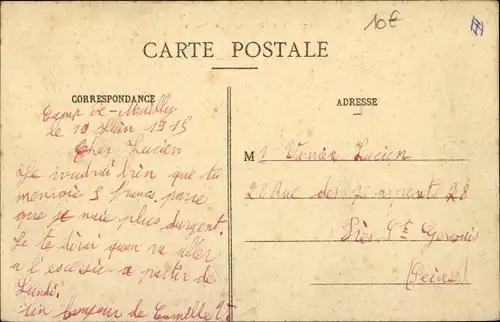 10€
CARTE POSTALE
CORRESPONDANCE
ADRESSE
Camp de-Mailly
le 19 Juin 1915
Cher Lucien
Je voudrai bien que tu
menvoie 5 francs parse
que je nuie plus durgent.
Je te dirai quan va aller
a l'escersie a partir de
Lundi.
un bonjour de Camille V
M Lucien
28 Rue des 28
Près St Gervais
(Seine)